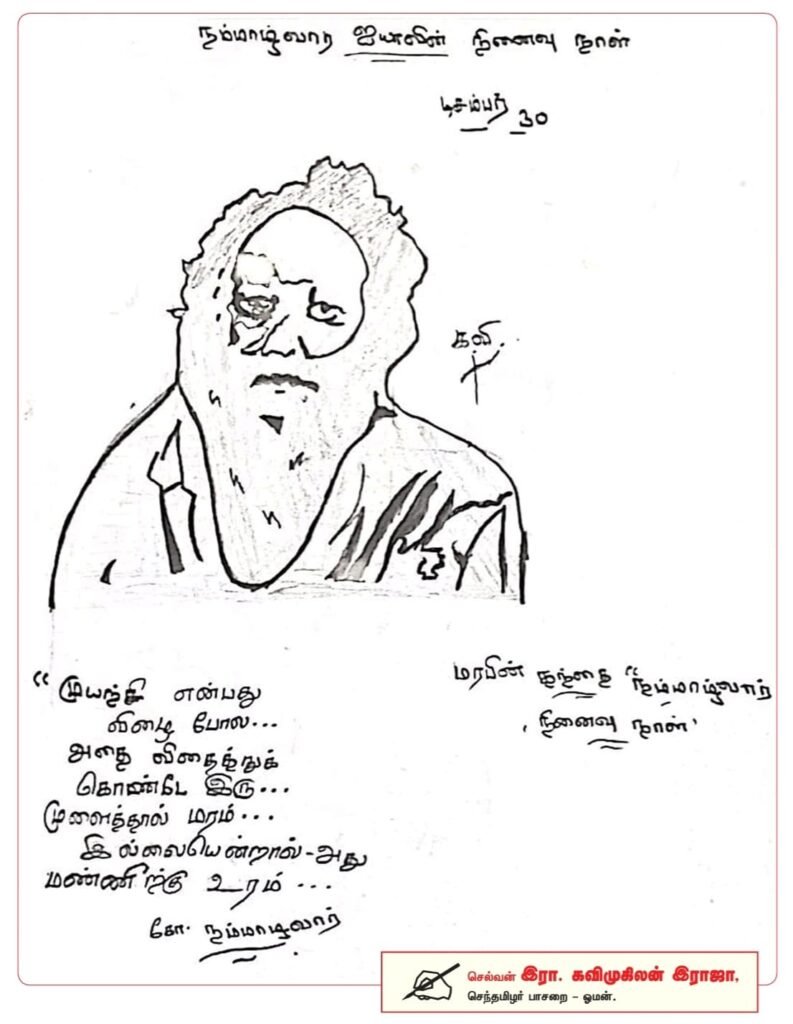 நம்மாழ்வார் ஐயாவின் நினைவு நாள்
டிசம்பர் 30
கவி.
"முயற்சி என்பது
விதை போல...
அதை விதைத்துக்
கொண்டே இரு...
முளைத்தால் மரம்...
இல்லையென்றால்-அது
மண்ணிற்கு உரம் ...
கோ. நம்மாழ்வார்
மரபின் தந்தை "நம்மாழ்வார்
நினைவு நாள்'
செல்வன் இரா. கவிமுகிலன் இராஜா,
செந்தமிழர் பாசறை – ஓமன்.